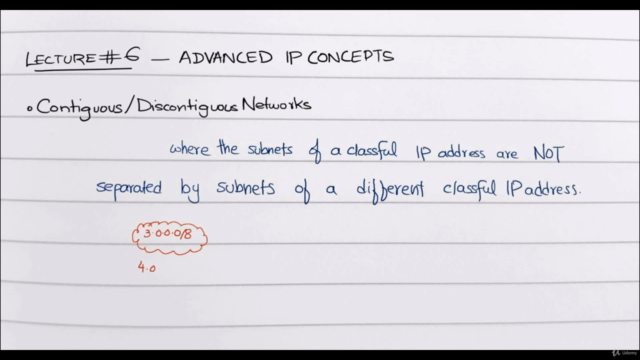 LECTURE # 6 — ADVANCED IP CONCEPTS
• Contiguous/Discontiguous Networks
where the subnets of a classful IP address are NOT
separated by subnets of a different classful IP address.
3.0.0.0/8
4.0
Udemy